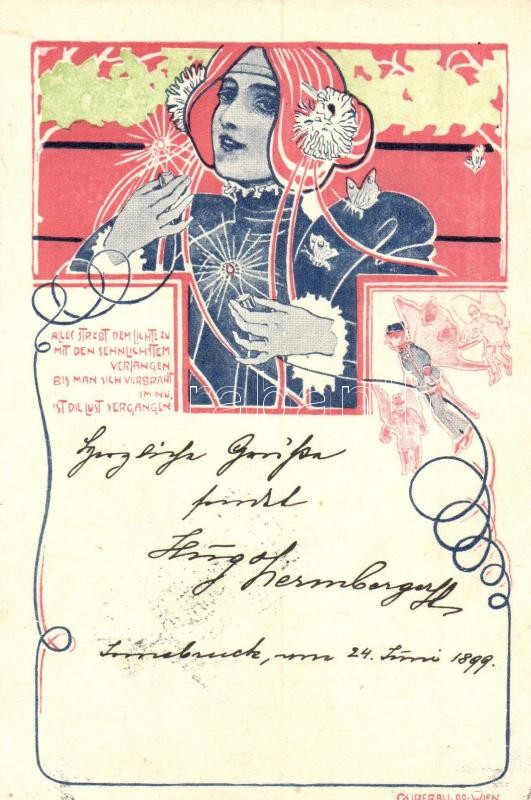 ALLES STREBT DEM LICHTE ZU
MIT DEN SEHNLICHSTEM
VERLANGEN
BIS MAN SICH VERBRANT
IM NU,
IST DIE LUST VERGANGEN
Herzliche Grüße
sendet
Hugo
Innsbruck, am 24. Juni 1899.
WIEN